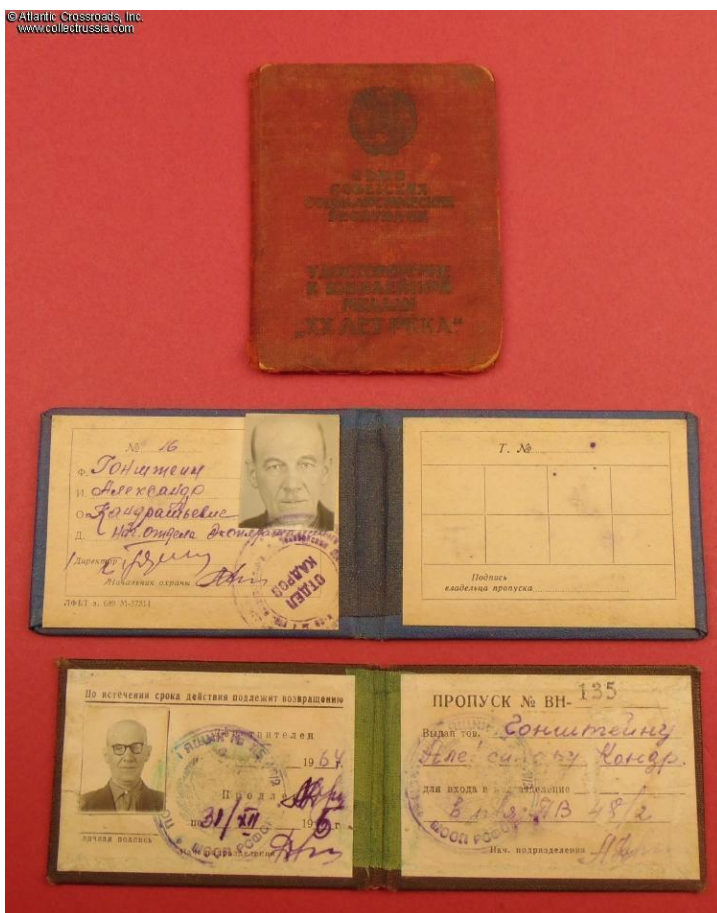 © Atlantic Crossroads, Inc.
www.collectrussia.com
СОЮЗ
СОВЕТСКИХ
СОЦИАЛИСТИЧЕСКИХ
РЕСПУБЛИК
УДОСТОВЕРЕНИЕ
К ЮБИЛЕЙНОЙ
МЕДАЛИ
„XX ЛЕТ РККА“
№ 16
Ф. Гонштеин
И. Александр
О. Кондратьевич
Д. Нач. отдела
Директор
Начальник охраны
ОТДЕЛ
КАДРОВ
Т. №
Подпись
владельца пропуска
По истечении срока действия подлежит возвращению
1964
Продлен
по 31/XII 196 г
личная подпись
Нач. подразделения
МООП РСФСР
ПРОПУСК № ВН- 135
Выдан тов. Гонштейну
Александру Кондр.
для входа в подразделение
48/2
Нач. подразделения
МООП РСФСР